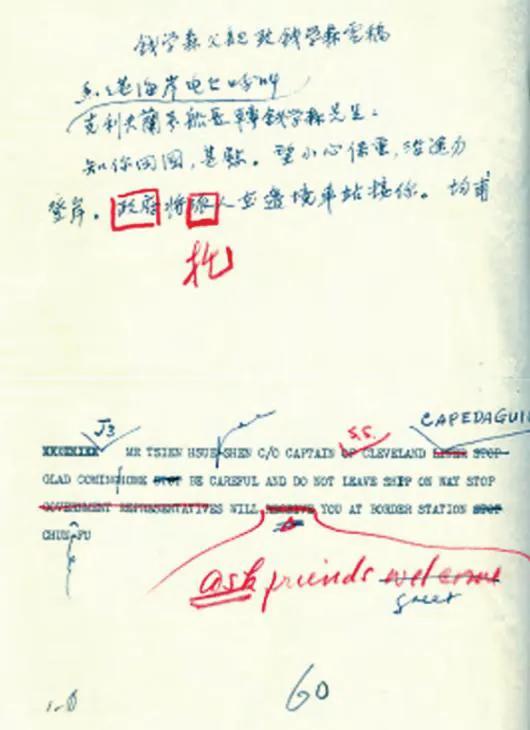 钱学森父親致钱学森電稿
海岸电台呼叫
克利夫蘭号船長轉錢学森先生:
知你回国,甚慰。望小心保重,沿途勿
登岸。政府将派人在邊境車站接你。均甫
托
CAPEDAGUIL
J3 S.S.
MR TSIEN HSUE SHEN C/O CAPTAIN OF CLEVELAND LINER STOP
GLAD COMINGHOME STOP BE CAREFUL AND DO NOT LEAVE SHIP ON WAY STOP
GOVERNMENT REPRESENTATIVES WILL RECEIVE YOU AT BORDER STATION STOP
CHUN FU
ask friends welcome
greet
60